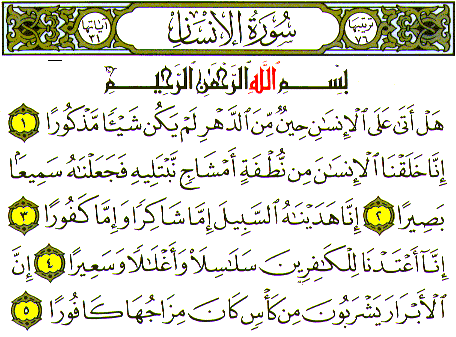 ترتيبها ٧٦ سُورَةُ الإِنسَانِ آياتها ٣١
بِسْمِ اللَّهِ الرَّحْمَٰنِ الرَّحِيمِ
هَلْ أَتَىٰ عَلَى ٱلْإِنسَٰنِ حِينٌ مِّنَ ٱلدَّهْرِ لَمْ يَكُن شَيْـًٔا مَّذْكُورًا ١
إِنَّا خَلَقْنَا ٱلْإِنسَٰنَ مِن نُّطْفَةٍ أَمْشَاجٍ نَّبْتَلِيهِ فَجَعَلْنَٰهُ سَمِيعًۢا
بَصِيرًا ٢ إِنَّا هَدَيْنَٰهُ ٱلسَّبِيلَ إِمَّا شَاكِرًا وَإِمَّا كَفُورًا ٣
إِنَّآ أَعْتَدْنَا لِلْكَٰفِرِينَ سَلَٰسِلَا۟ وَأَغْلَٰلًا وَسَعِيرًا ٤ إِنَّ
ٱلْأَبْرَارَ يَشْرَبُونَ مِن كَأْسٍ كَانَ مِزَاجُهَا كَافُورًا ٥